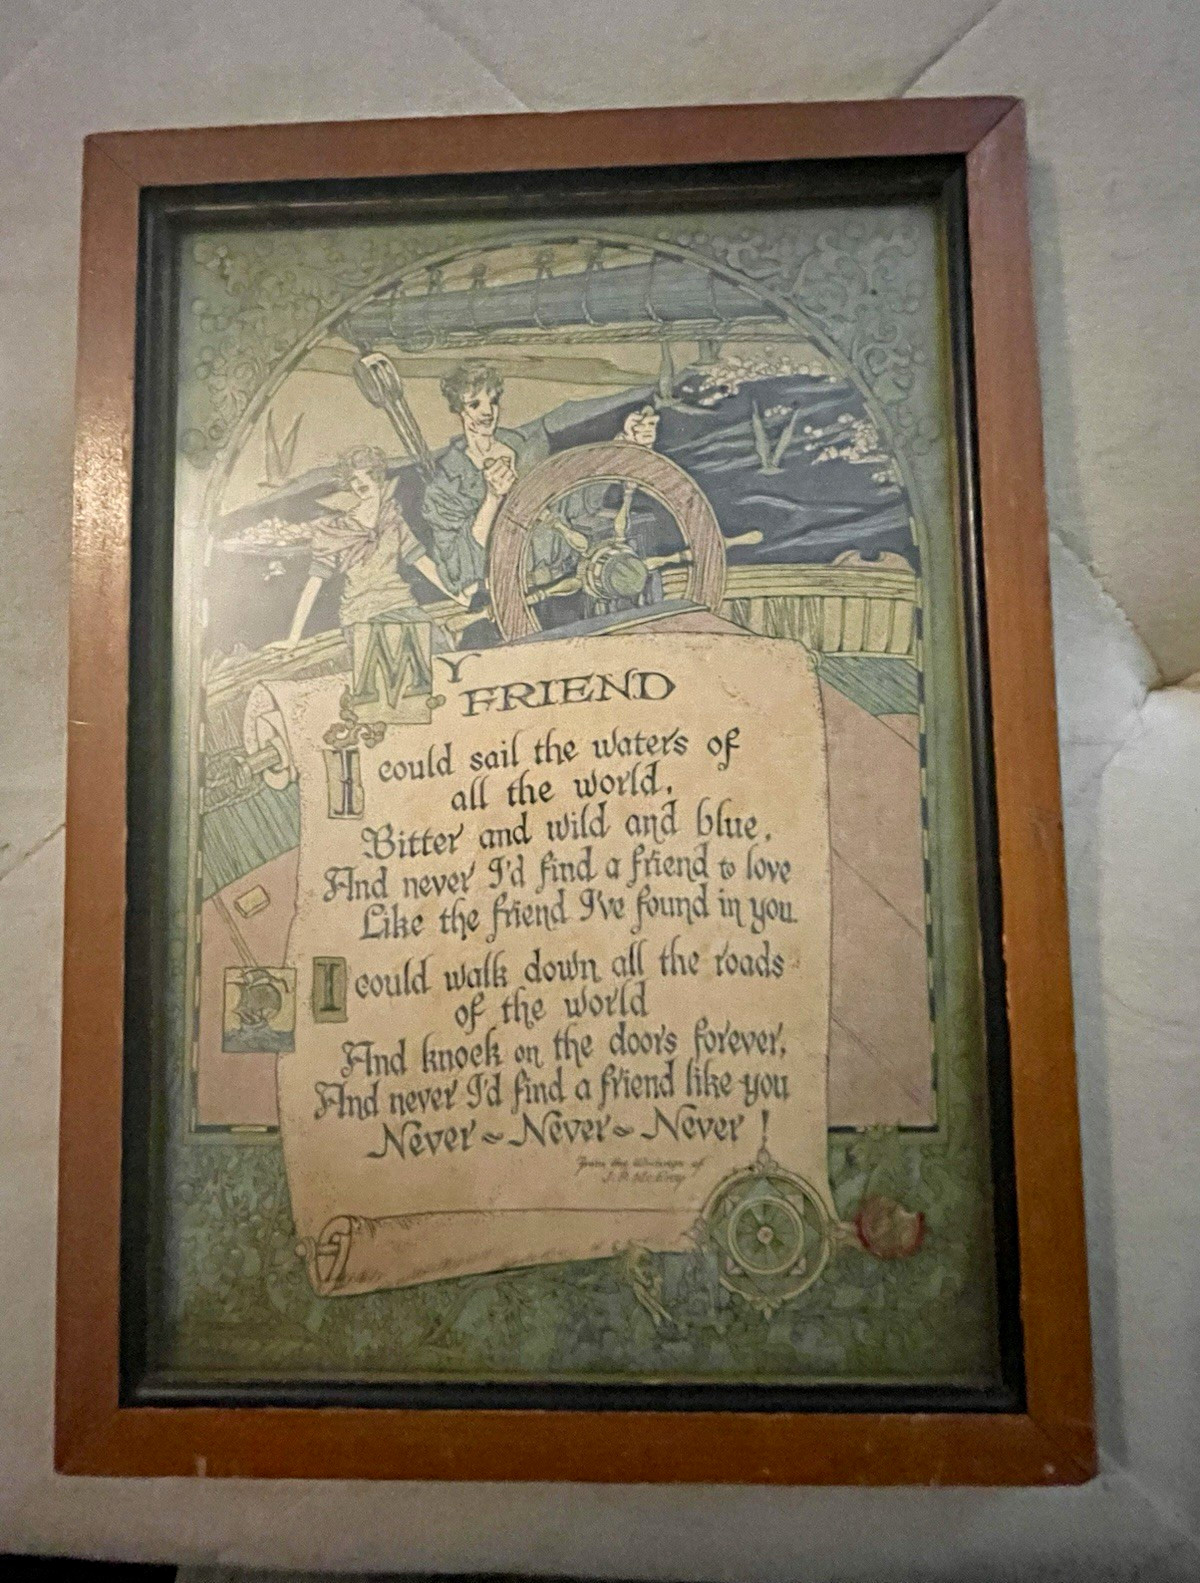 MY
FRIEND
I could sail the waters of
all the world,
Bitter and wild and blue,
And never I'd find a friend to love
Like the friend I've found in you.
I could walk down all the roads
of the world
And knock on the doors forever,
And never I'd find a friend like you
Never ~ Never ~ Never!
From the Writings of
J. P. McEvoy